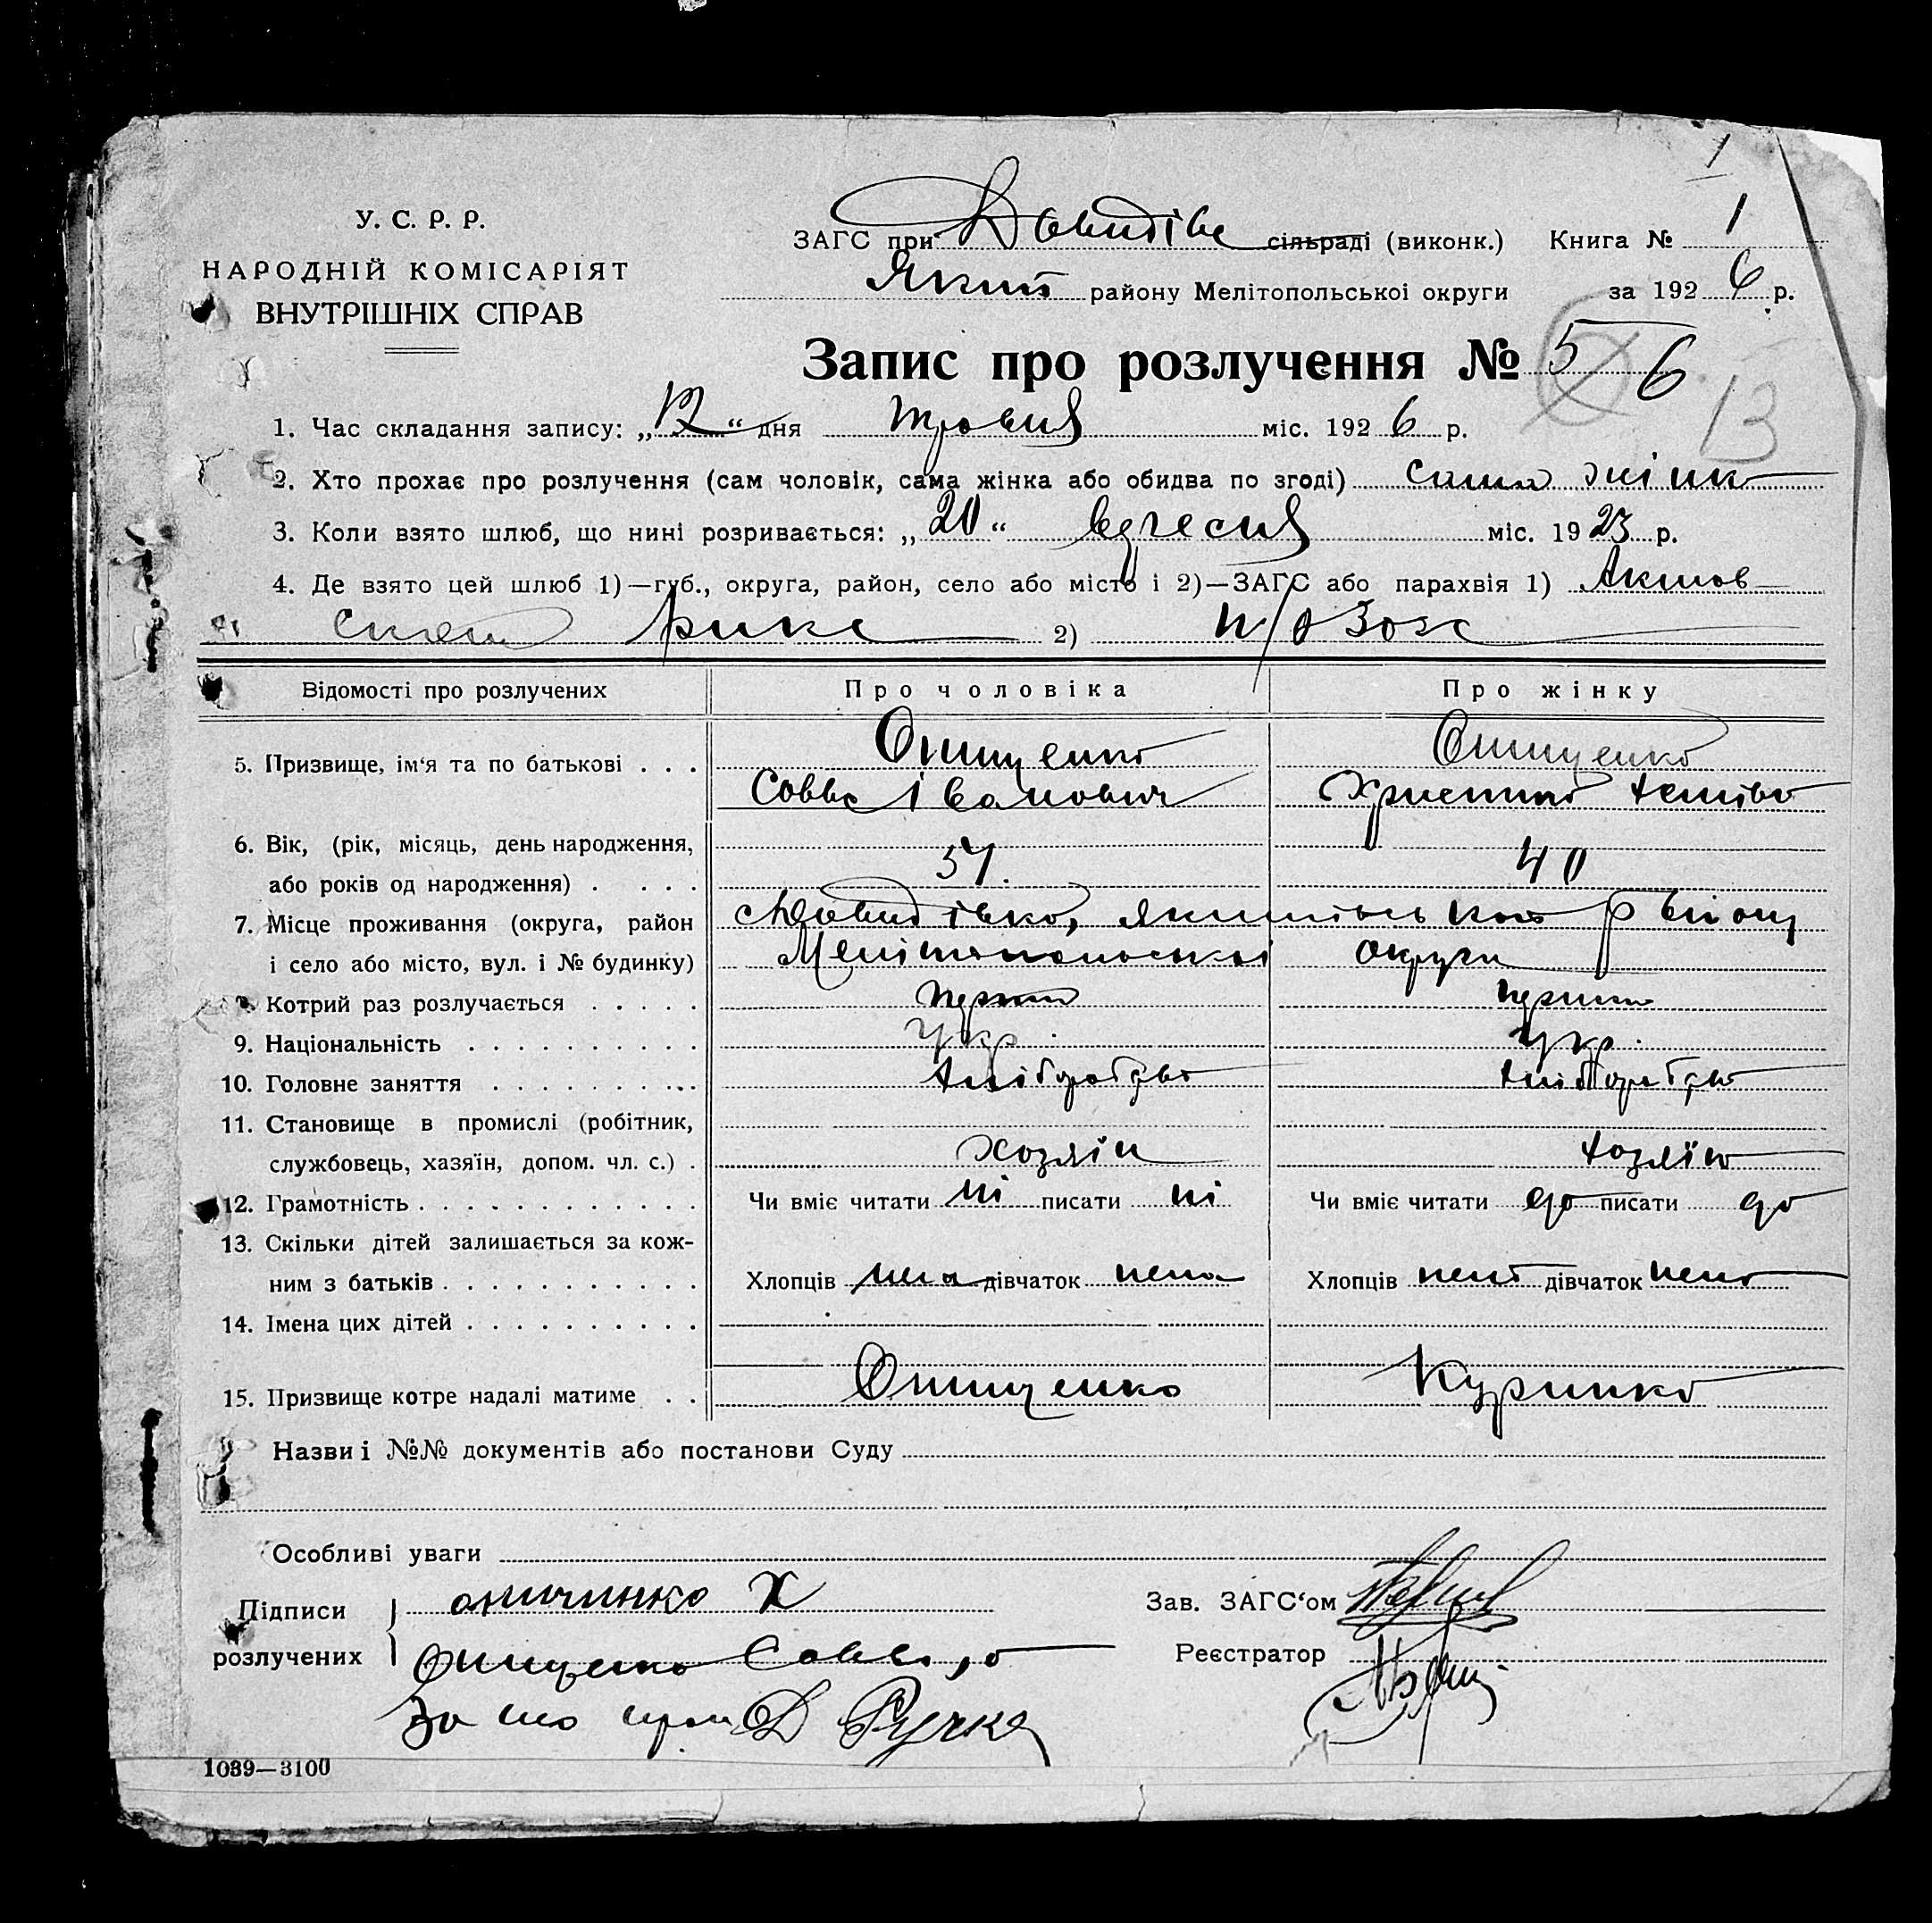 1
У. С. Р. Р.
НАРОДНІЙ КОМІСАРІЯТ
ВНУТРІШНІХ СПРАВ
ЗАГС при Давидівс сільраді (виконк.) Книга № 1
Яким району Мелітопольської округи за 1926 р.
Запис про розлучення № 5 6
13
1. Час складання запису: „12“ дня травня міс. 1926 р.
2. Хто прохає про розлучення (сам чоловік, сама жінка або обидва по згоді) сама жінка
3. Коли взято шлюб, що нині розривається: „20“ вересня міс. 1923 р.
4. Де взято цей шлюб 1)—губ., округа, район, село або місто і 2)—ЗАГС або парахвія 1)
2)
Відомості про розлучених Про чоловіка Про жінку
5. Призвище, ім‘я та по батькові . . . Онищенко Онищенко
Савва Іванович Христина
6. Вік, (рік, місяць, день народження,
або років од народження) . . . . 57. 40
7. Місце проживання (округа, район Давидівка, Якимівського району
і село або місто, вул. і № будинку) Мелітопольської округи
8. Котрий раз розлучається . . . . . перший перший
9. Національність . . . . . . . . . . Укр. Укр.
10. Головне заняття . . . . . . . . . хліборобство хліборобство
11. Становище в промислі (робітник,
службовець, хазяїн, допом. чл. с.) . хозяїн хозяїн
12. Грамотність . . . . . . . . . . . . Чи вміє читати ні писати ні Чи вміє читати до писати до
13. Скільки дітей залишається за кож-
ним з батьків . . . . . . . . . . . Хлопців нема дівчаток нема Хлопців нема дівчаток нема
14. Імена цих дітей . . . . . . . . . .
15. Призвище котре надалі матиме . . Онищенко Куринко
Назви і №№ документів або постанови Суду
Особливі уваги
Підписи розлучених
оничинко Х
Онищенко Савва
Ручка
Зав. ЗАГС‘ом
Реєстратор
1039—3100